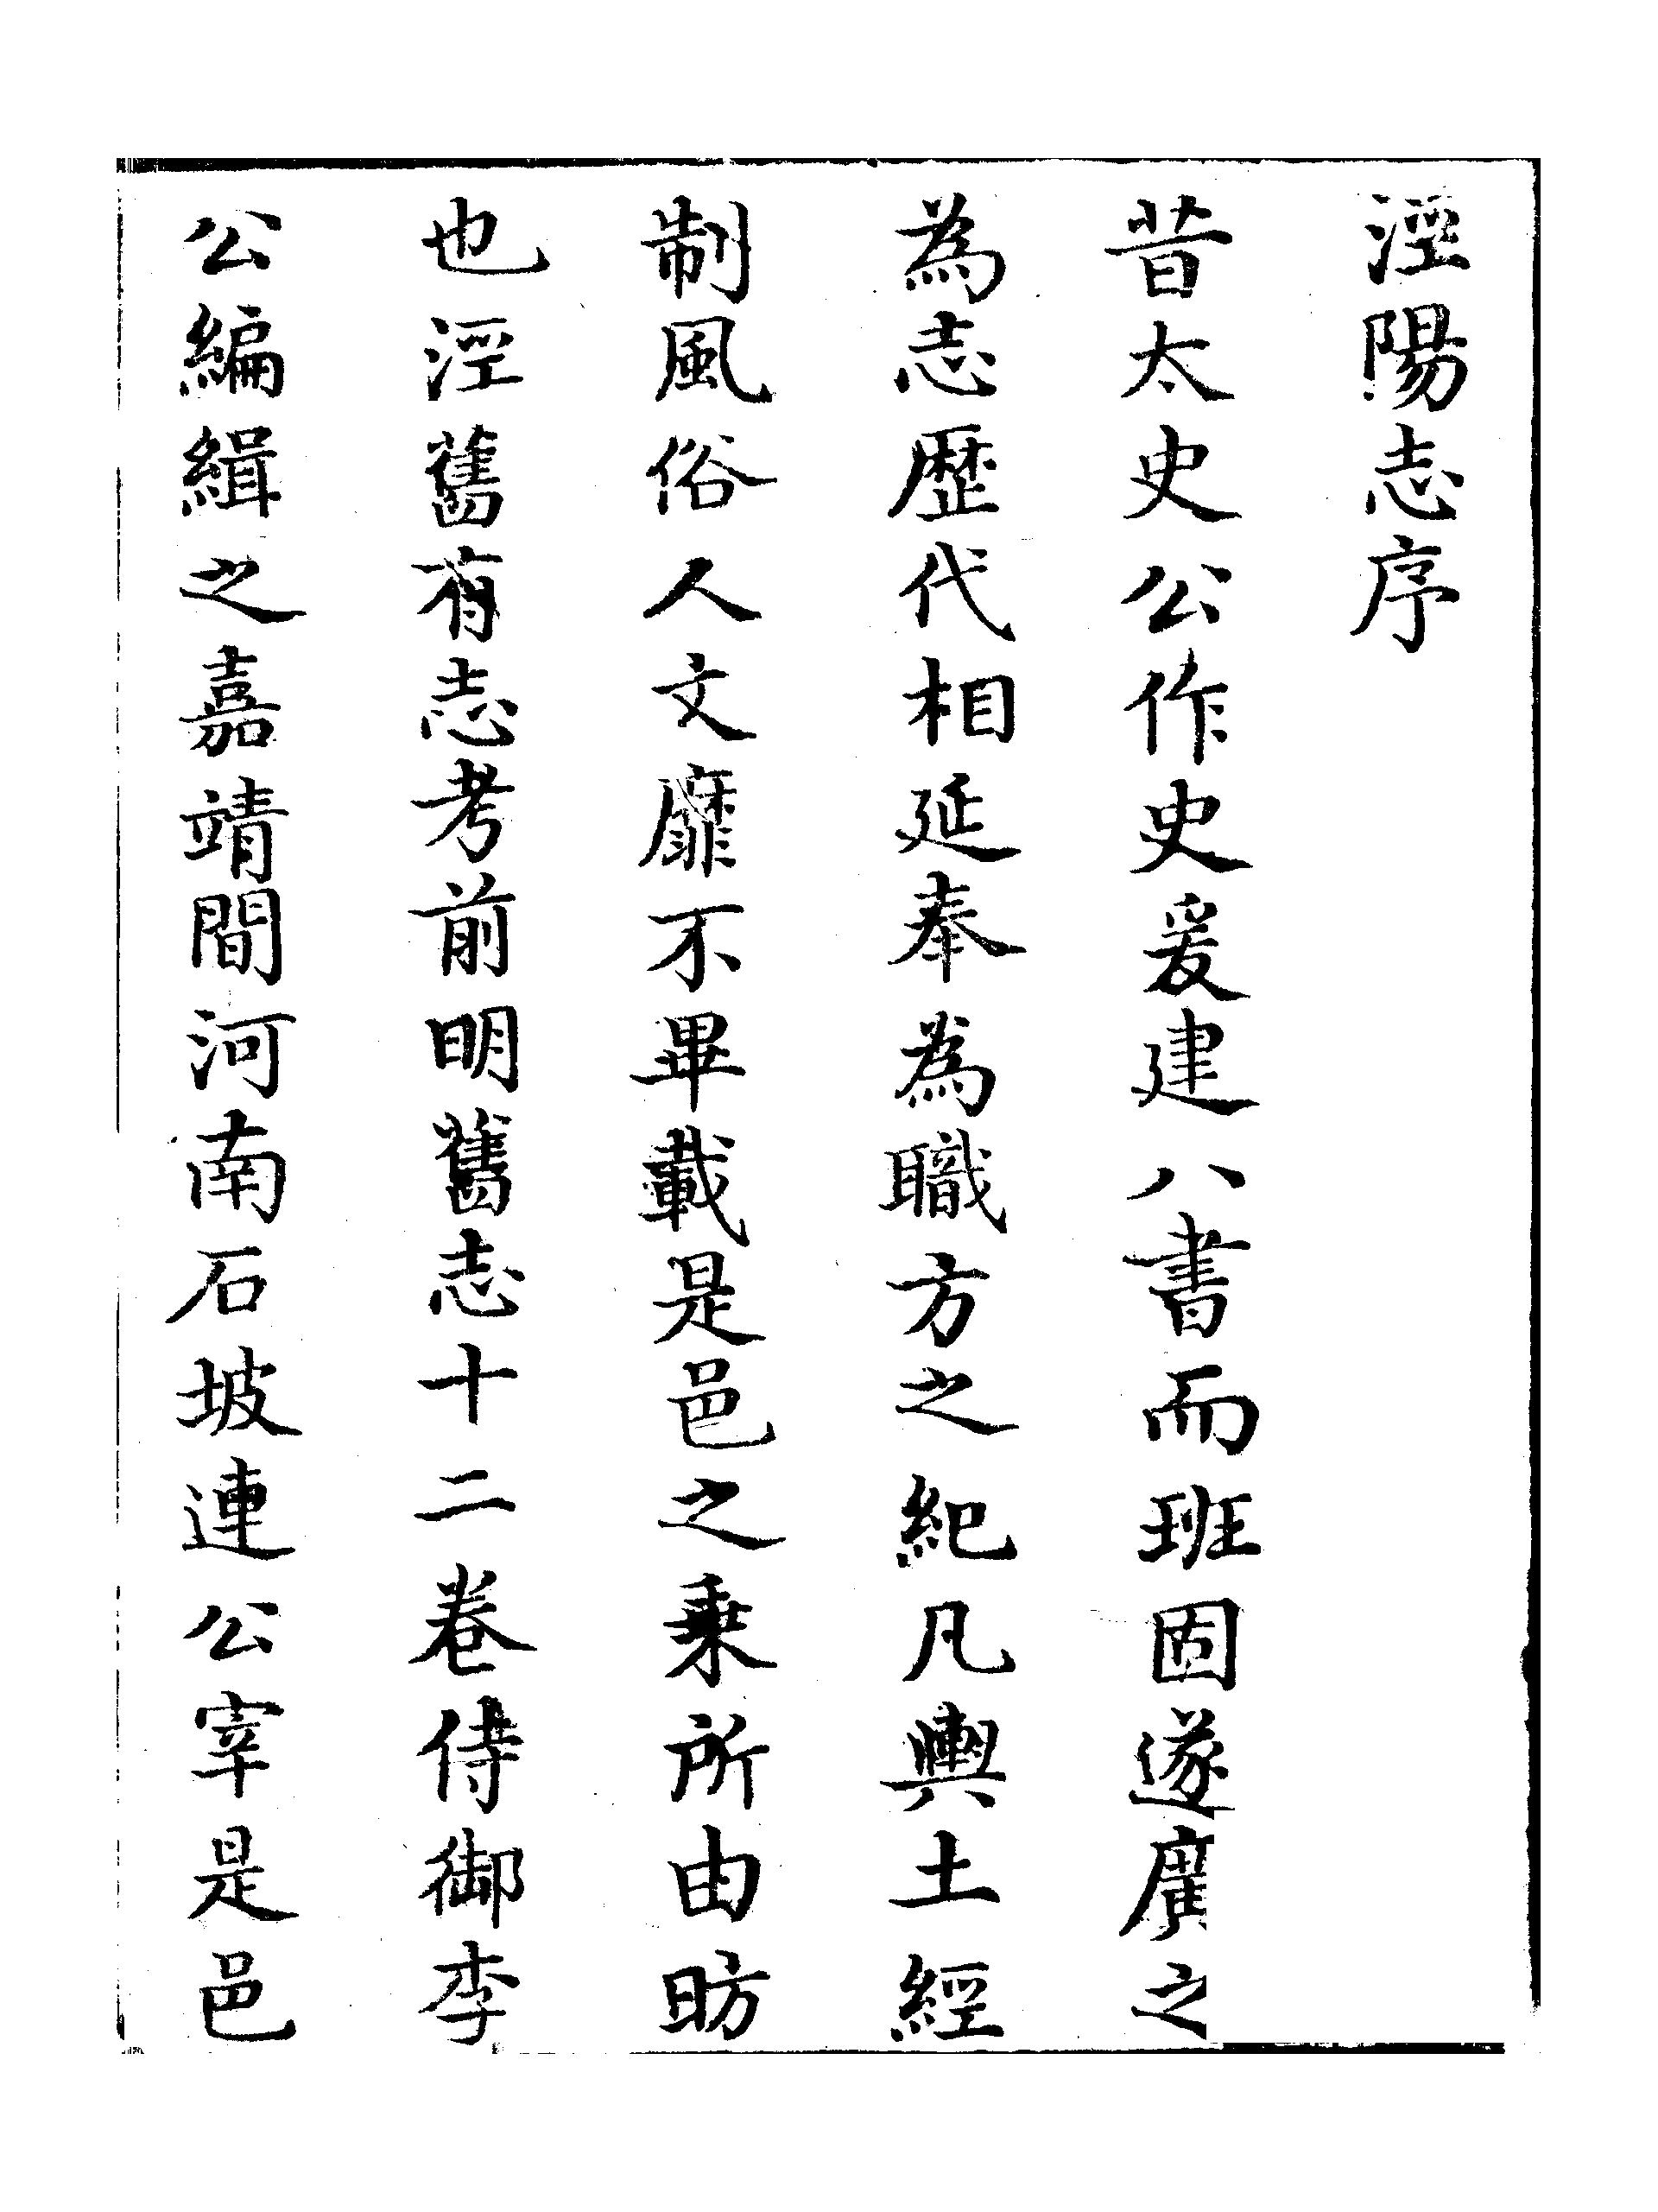 涇陽志序
昔太史公作史爰建八書而班固遂廣之
為志歷代相延奉為職方之紀凡輿土經
制風俗人文靡不畢載是邑之乗所由昉
也涇舊有志考前明舊志十二卷侍御李
公編緝之嘉靖間河南石坡連公宰是邑